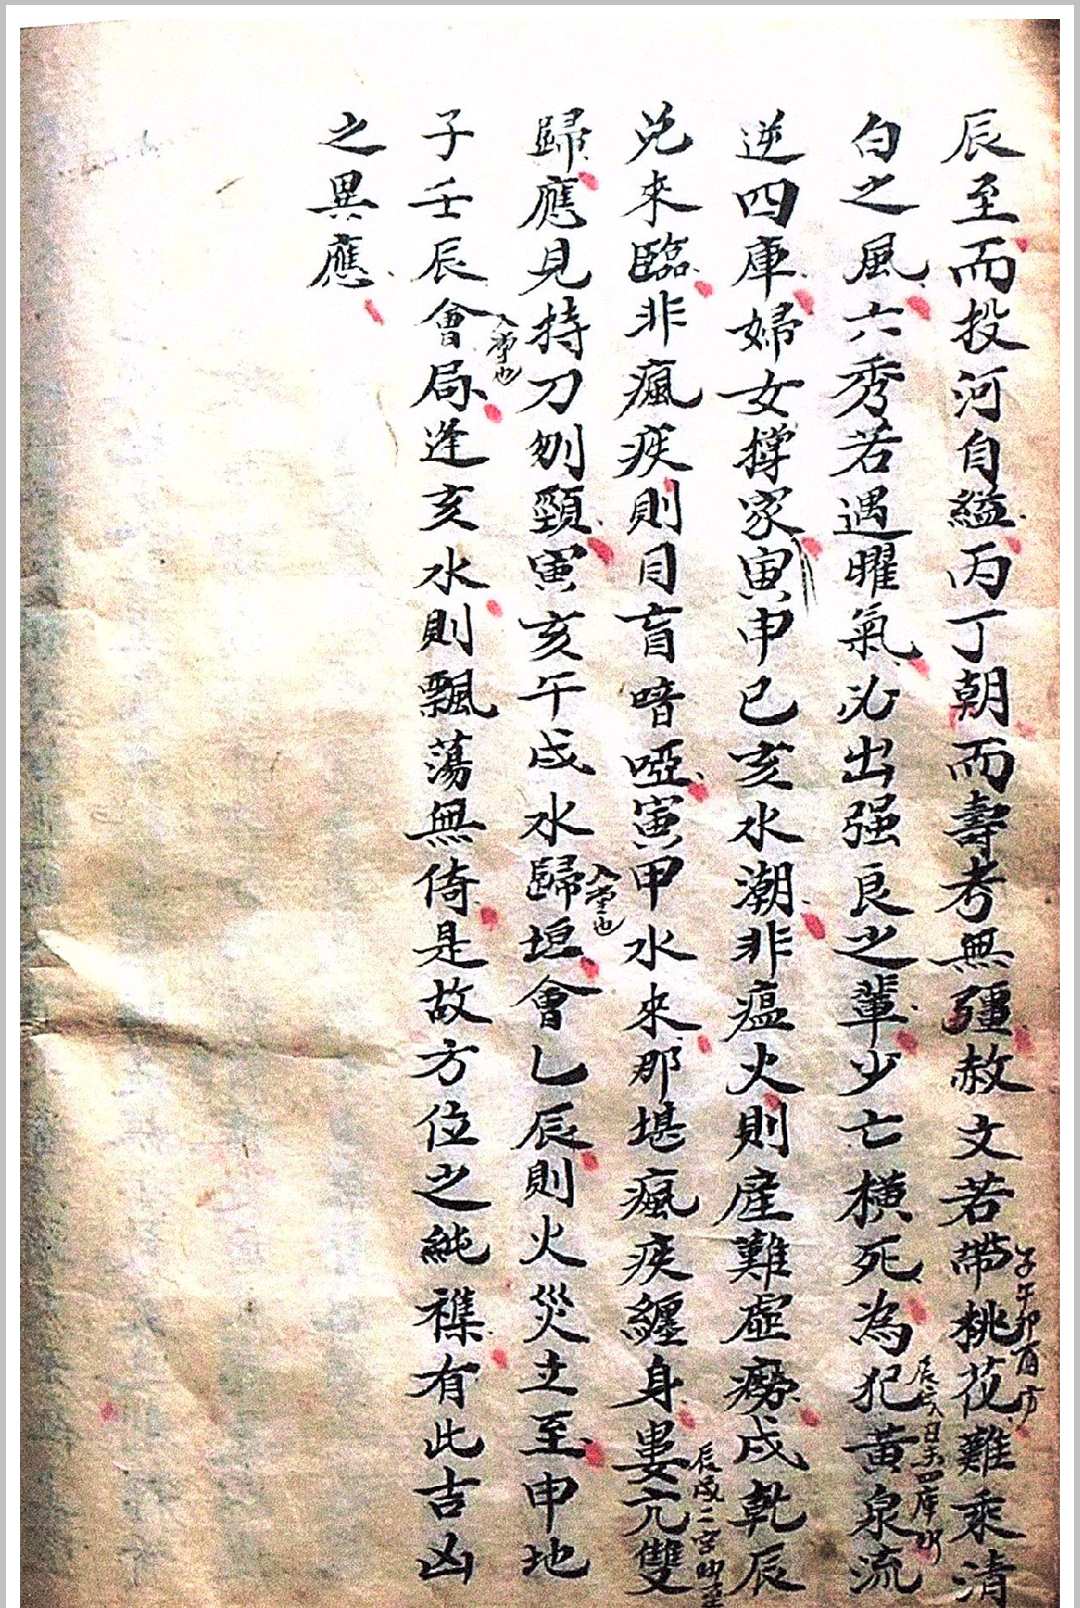 辰至而投河自縊丙丁朝而壽考無疆赦文若帶桃花難乘清
子午卯酉方
白之風六秀若遇曜氣必出强良之輩少亡橫死為犯黃泉流
辰戌丑未四庫
逆四庫婦女撐家寅申巳亥水潮非瘟火則産難虛癆戌乾辰
兌來臨非瘋疾則目盲喑啞寅甲水來那堪瘋疾纏身婁亢雙
辰戌二宮
歸應見持刀刎頸寅亥午戌水歸垣會乙辰則火災立至申地
入堂也
子壬辰會局逢亥水則飄蕩無倚是故方位之純襍有此吉凶
入堂也
之異應